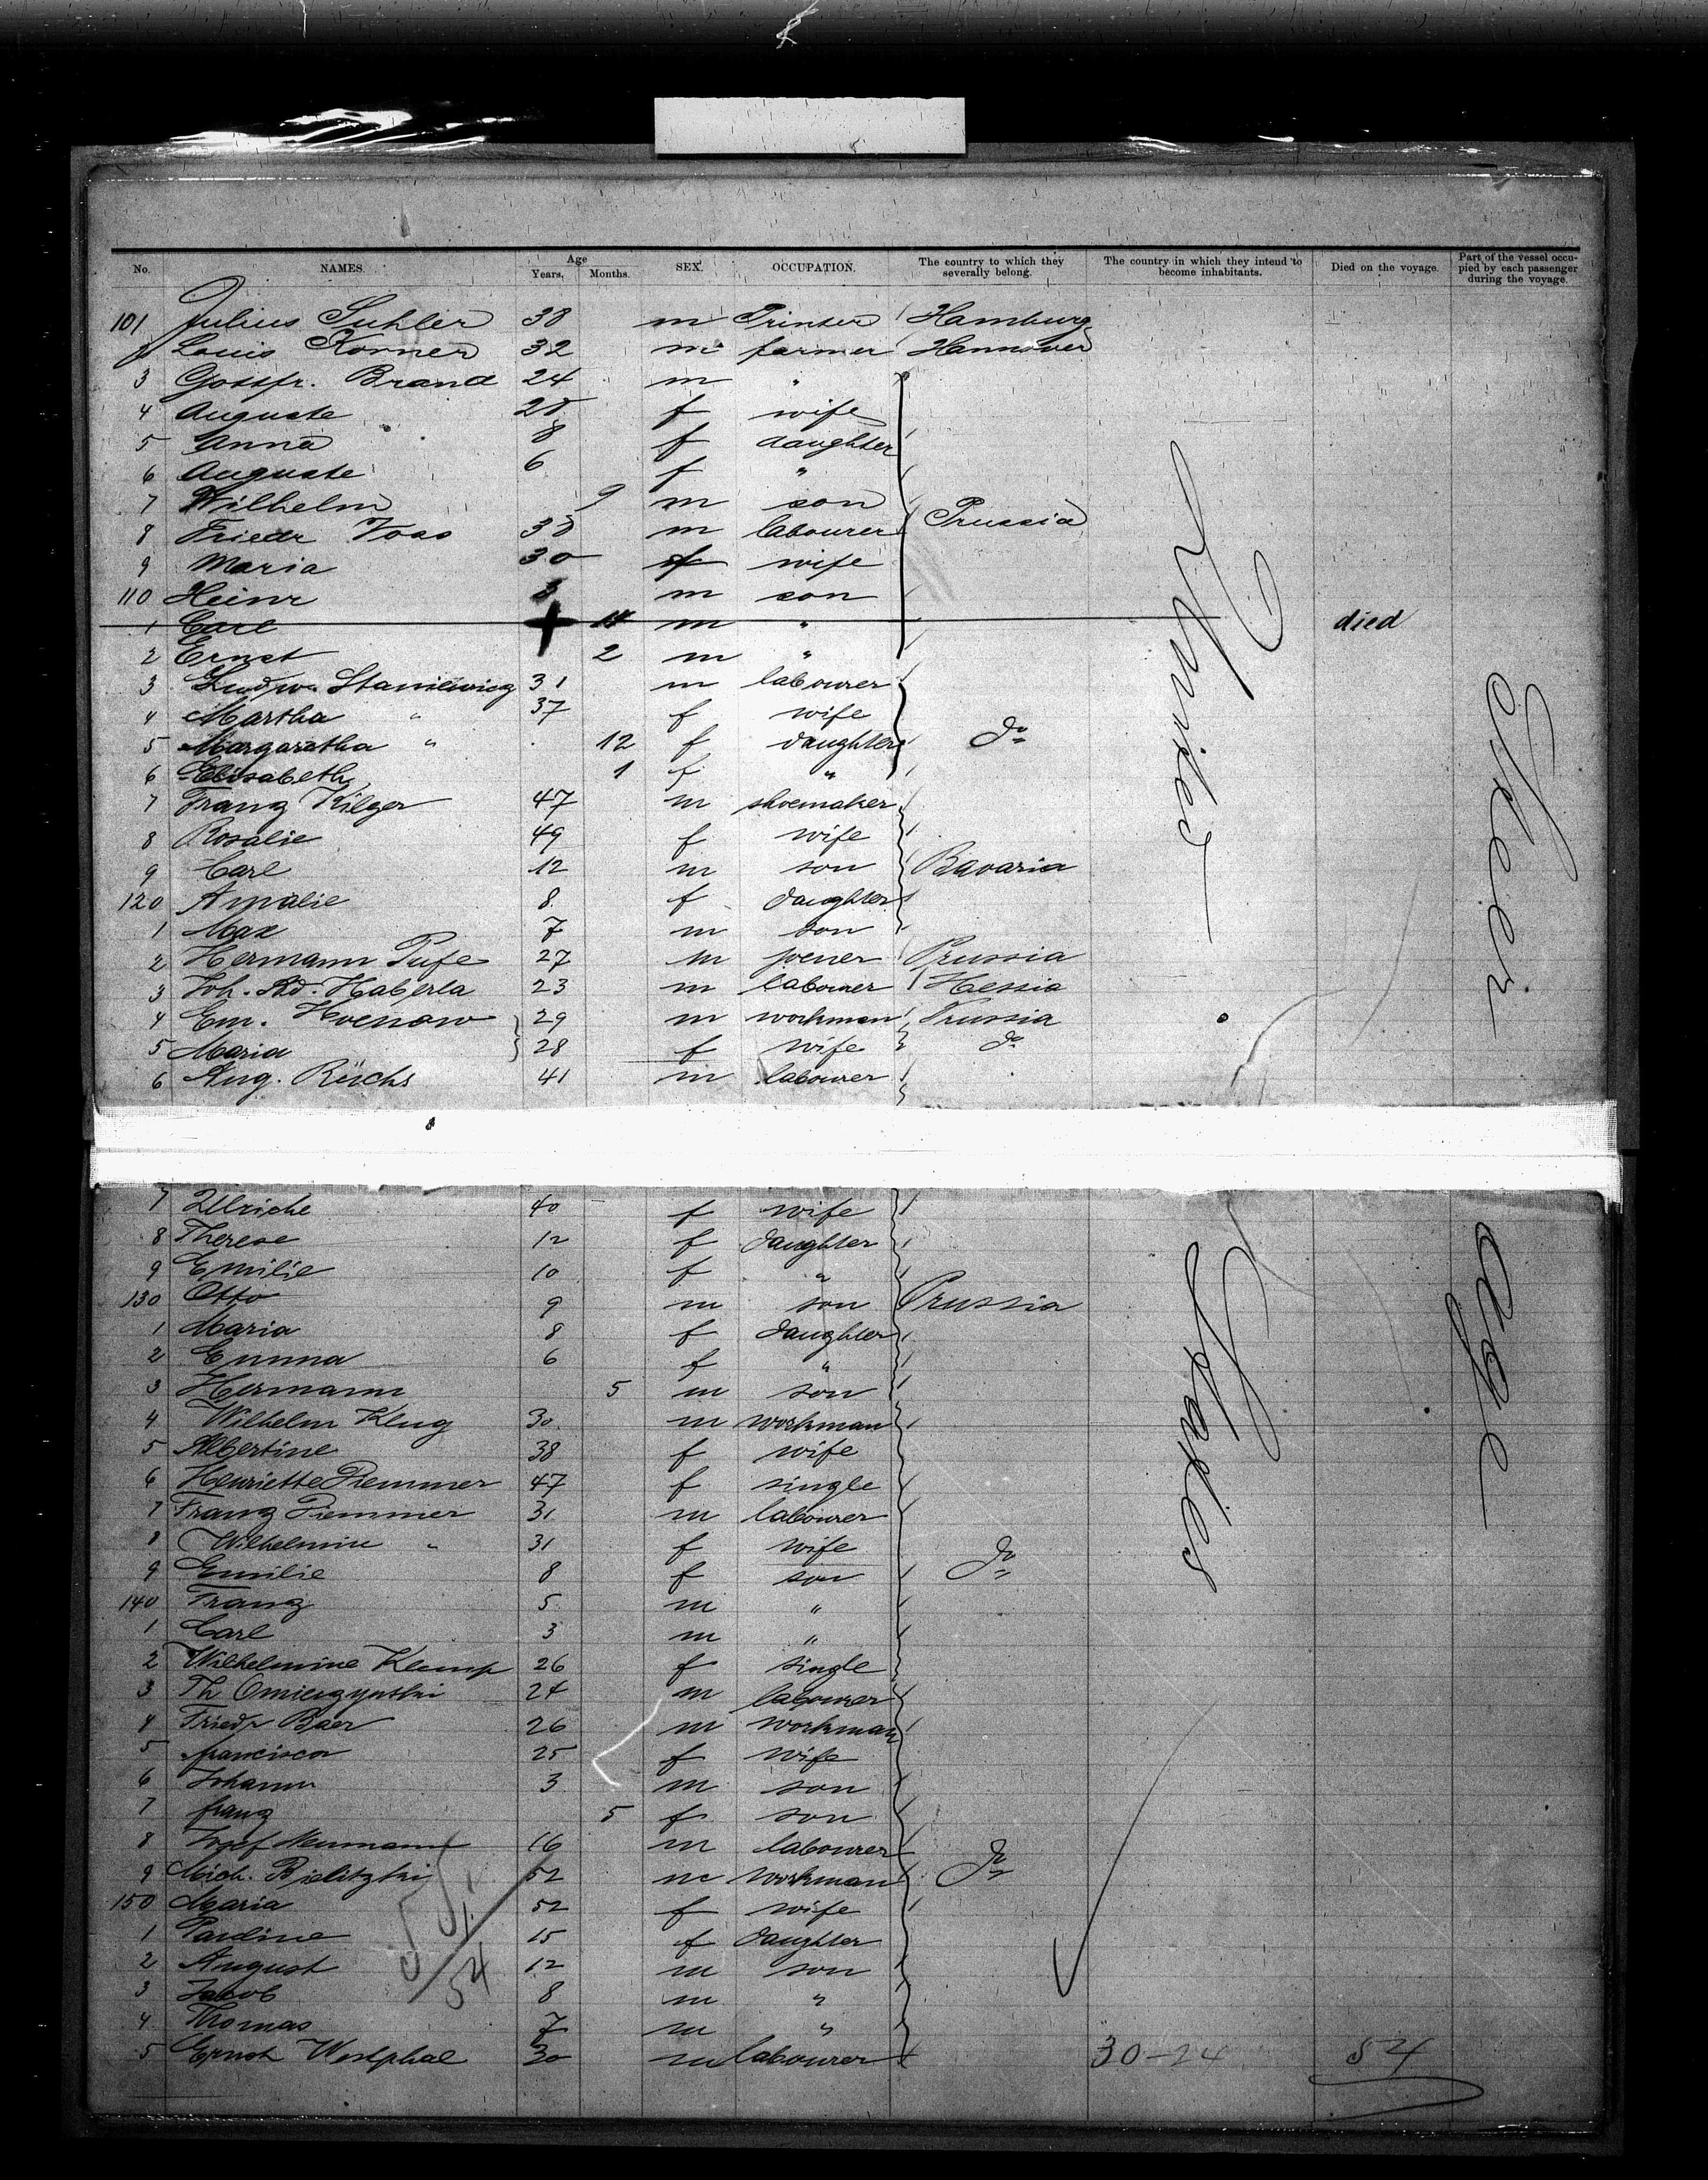 No. NAMES. Age Years. Months. SEX. OCCUPATION. The country to which they severally belong. The country in which they intend to become inhabitants. Died on the voyage. Part of the vessel occupied by each passenger during the voyage.
101 Julius Suhler 38 m Printer Hamburg
2 Louis Korner 32 m farmer Hannover
3 Gottfr. Brand 24 m "
4 Auguste 28 f wife
5 Anna 8 f daughter
6 Auguste 6 f "
7 Wilhelm 9 m son Prussia
8 Friedr Voss 38 m labourer
9 Maria 30 f wife
110 Heinr 3 m son
1 Carl 11 m " died
2 Ernst 2 m "
3 Ludw. 31 m labourer
4 Martha " 37 f wife
5 Margaretha " 12 f daughter do
6 Elisabeth 1 f "
7 Franz Kilger 47 m shoemaker
8 Rosalie 49 f wife
9 Carl 12 m son Bavaria
120 Amalie 8 f daughter
1 Max 7 m son
2 Hermann Pufe 27 m joener Prussia
3 Joh. Ad. Haberla 23 m labourer Hessia
4 Em. Hoenow 29 m workman Prussia
5 Maria 28 f wife do
6 Aug. Rüchs 41 m labourer
7 Ulriche 40 f wife
8 Therese 12 f daughter
9 Emilie 10 f "
130 Otto 9 m son Prussia
1 Maria 8 f daughter
2 Emma 6 f "
3 Hermann 5 m son
4 Wilhelm Klug 30 m workman
5 Albertine 38 f wife
6 Henriette Piemmer 47 f single
7 Franz Piemmer 31 m labourer
8 Wilhelmine " 31 f wife do
9 Emilie 8 f son
140 Franz 5 m "
1 Carl 3 m "
2 Wilhelmine Klemp 26 f single
3 Th 24 m labourer
4 Friedr Baer 26 m workman
5 francisca 25 f wife
6 Johann 3 m son
7 franz 5 f son
8 Josef Neumann 16 m labourer
9 Mich. Bielitzki 52 m workman do
150 Maria 52 f wife
1 Pauline 15 f daughter
2 August 12 m son
3 Jacob 8 m "
4 Thomas 7 m "
5 Ernst Westphal 30 m labourer
30-24 54
United States
Steerage
54